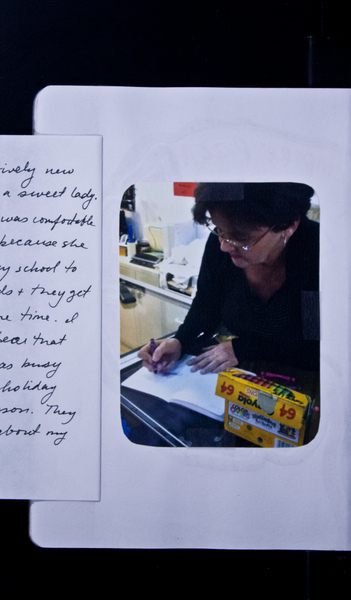 new
a sweet lady.
was comfortable
because she
school to
+ they get
time. I
that
as busy
holiday
son. They
about my
64
64